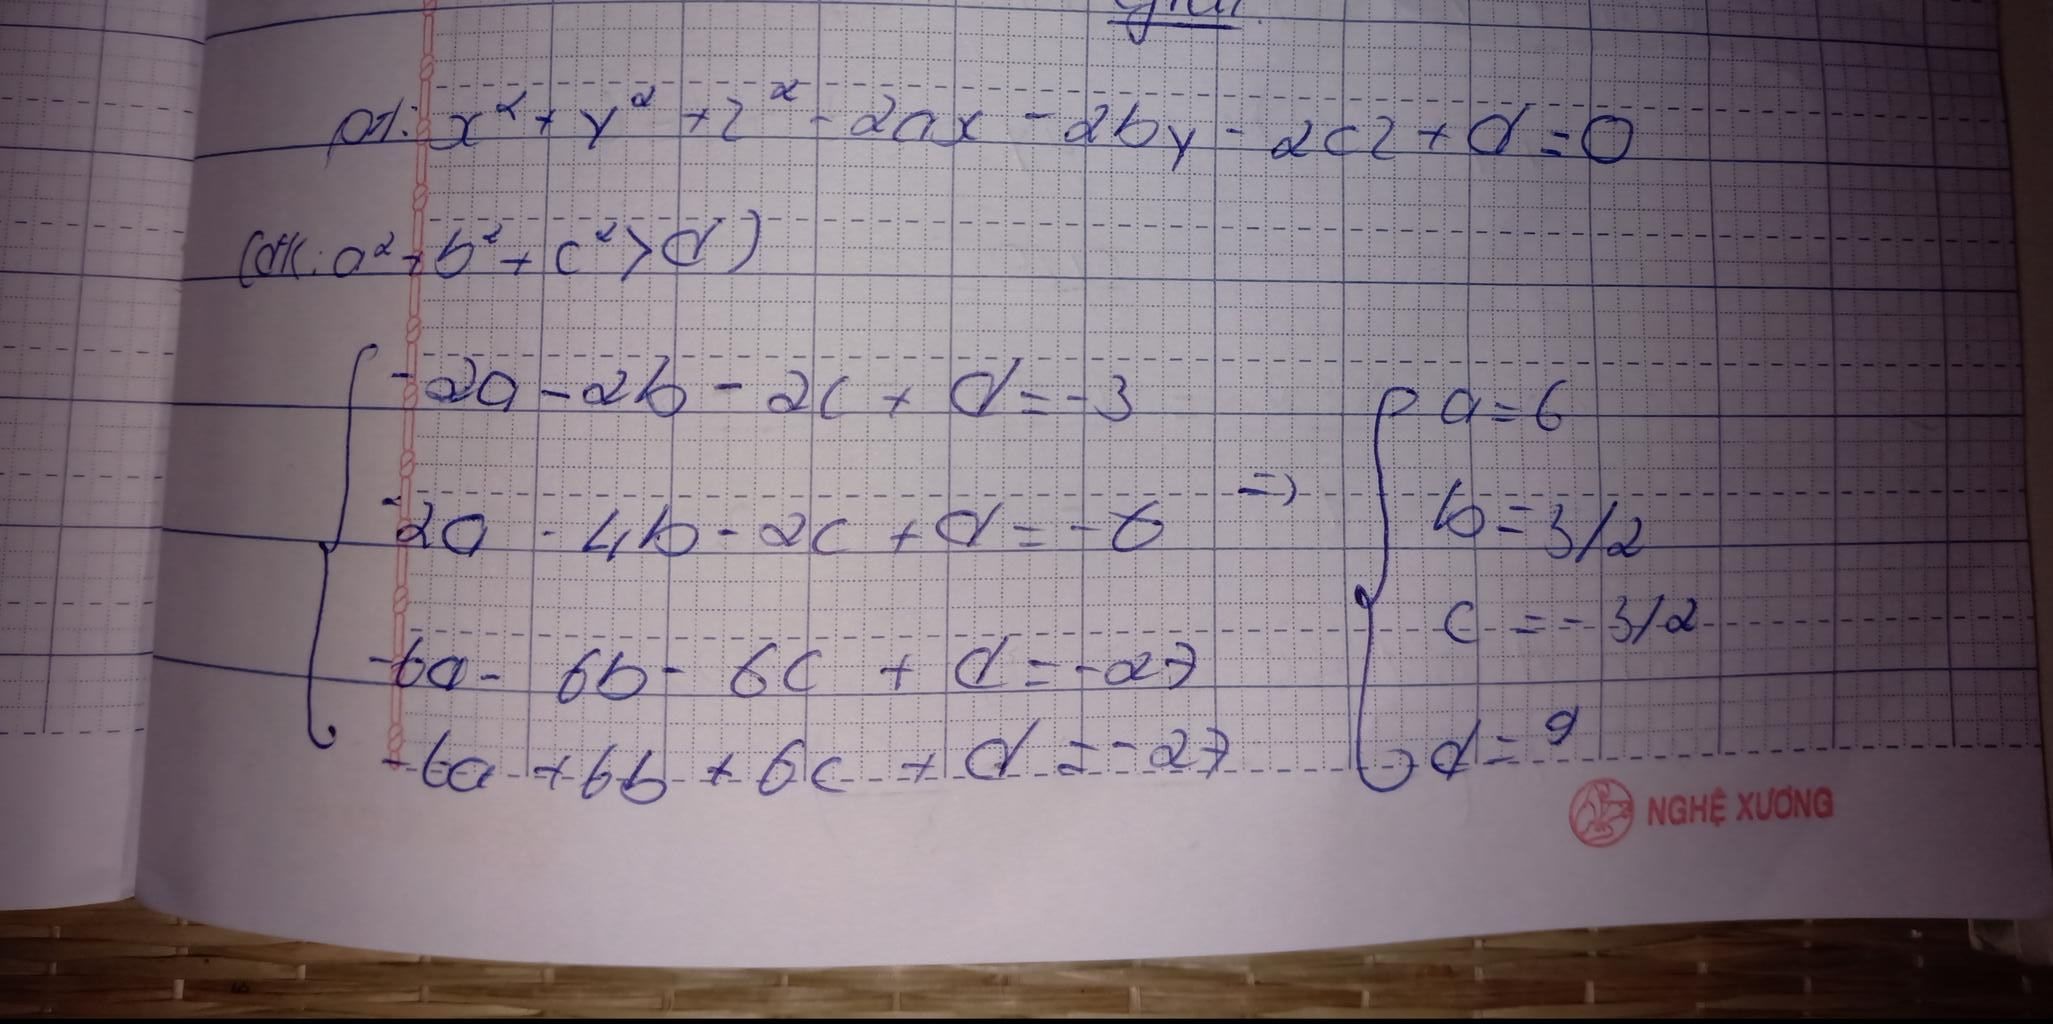 Giải
pt: x² + y² + z² - 2ax - 2by - 2cz + d = 0
(đk: a² + b² + c² > d)
-2a - 2b - 2c + d = -3
-2a - 4b - 2c + d = -6
-6a - 6b - 6c + d = -27
-6a + 6b + 6c + d = -27
=> a = 6
b = 3/2
c = -3/2
d = 9
NGHỆ XƯƠNG